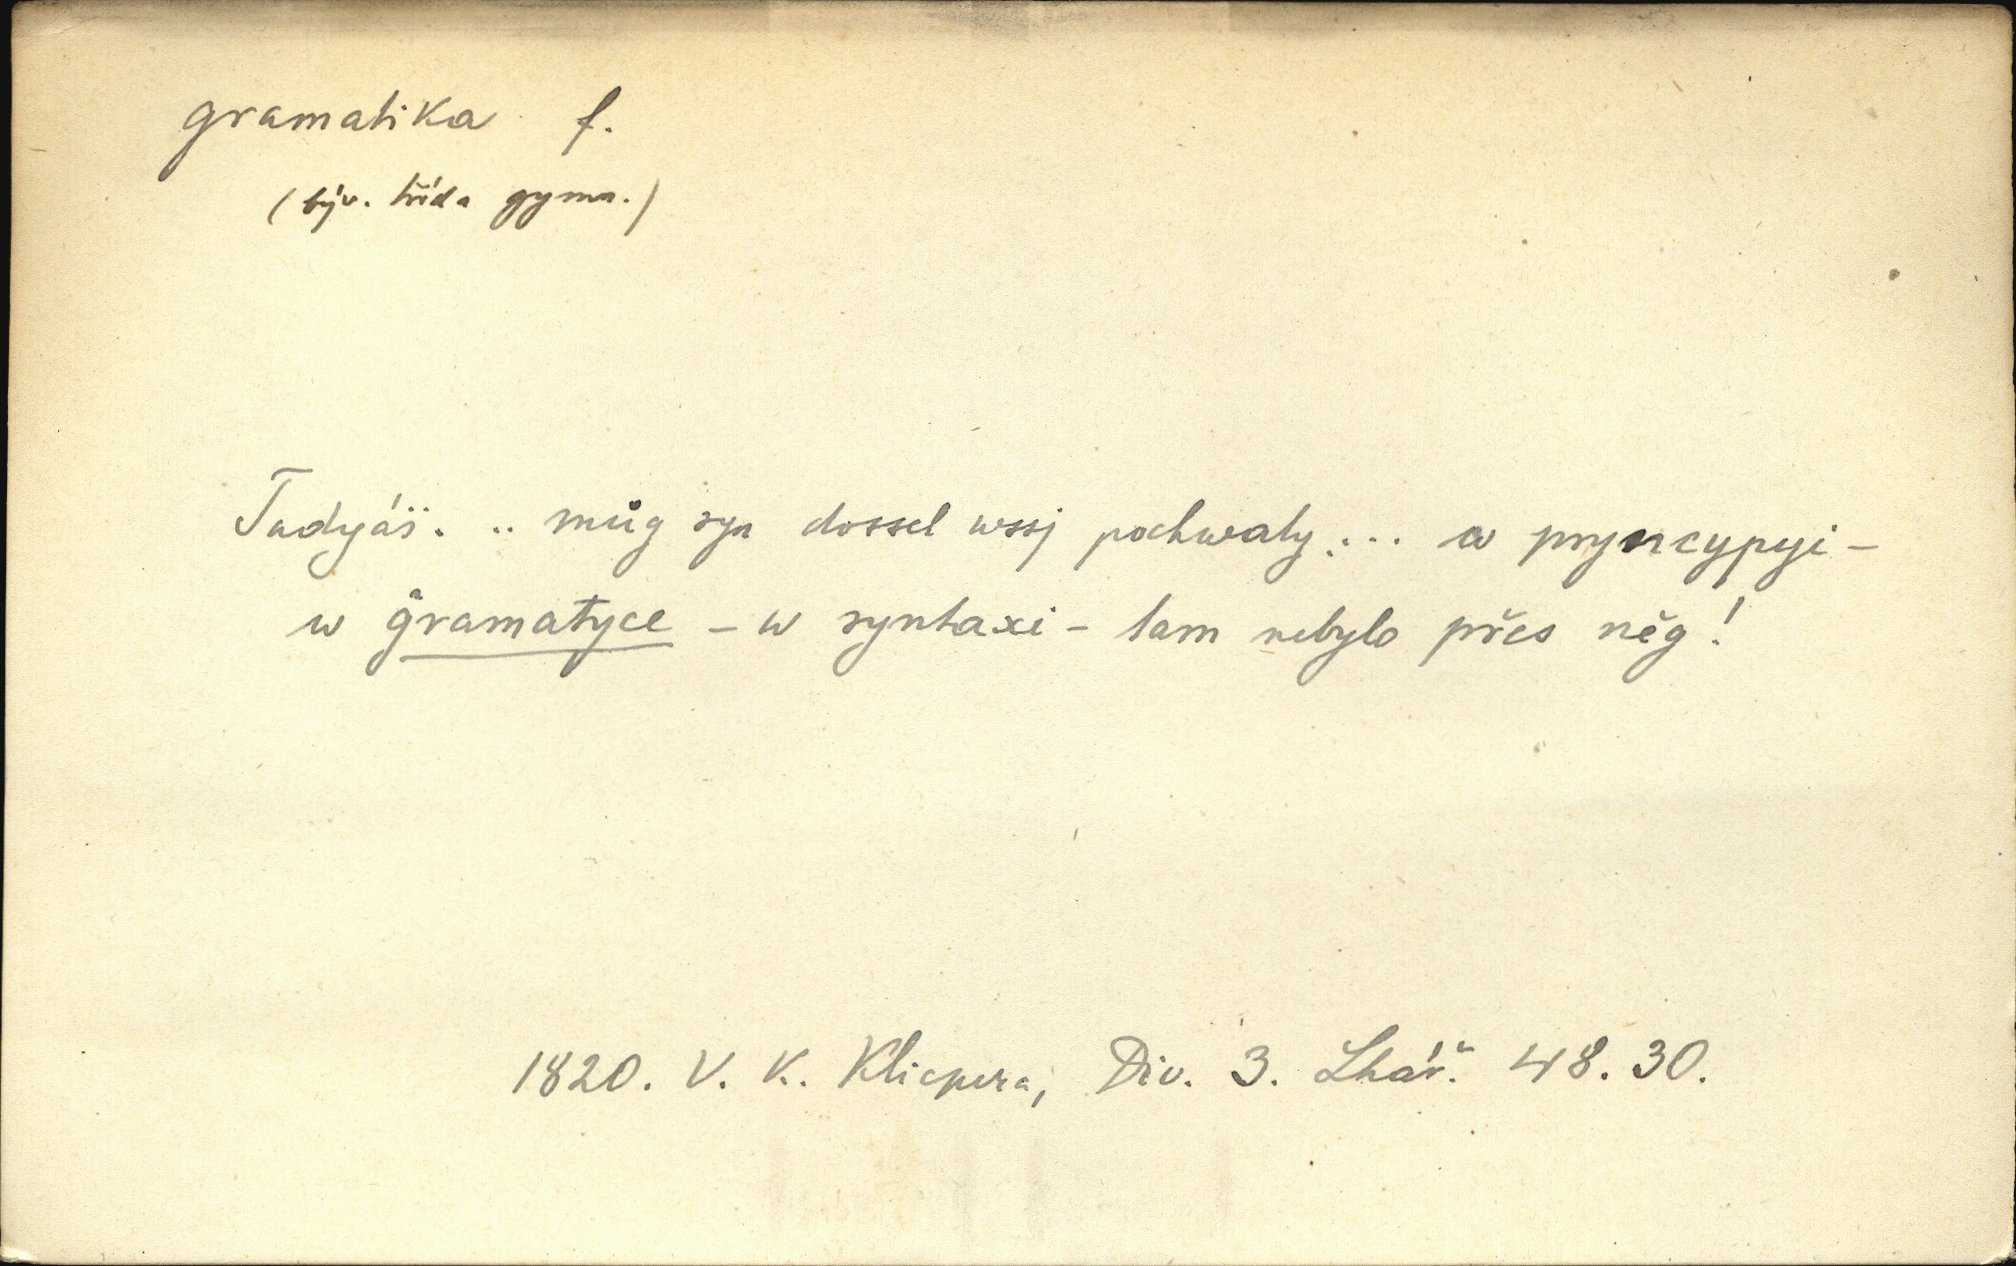 gramatika f.
(býv. třída gymn.)
Tadyáš. .. můg syn dossel wssj pochwaly... w pryncypyi –
w ğramatyce – w syntaxi – tam nebylo přes něg!
1820. V. K. Klicpera, Div. 3. Lhář. 48. 30.